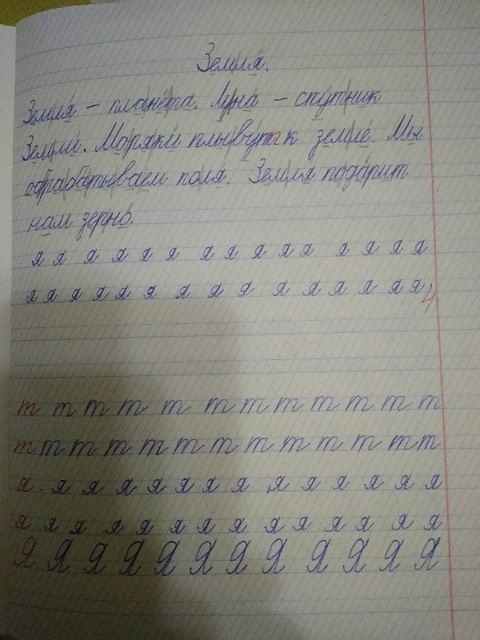 Земля.
Земля – планета. Луна – спутник
Земли. Моряки плывут к земле. Мы
обрабатываем поля. Земля подарит
нам зерно.
я я я я я я я я я я я я я я я
я я я я я я я я я я я я я я я 4
т т т т т т т т т т т т
т т т т т т т т т т т т т
я я я я я я я я я я я я я
я я я я я я я я я я я я
Я Я Я Я Я Я Я Я Я Я Я Я